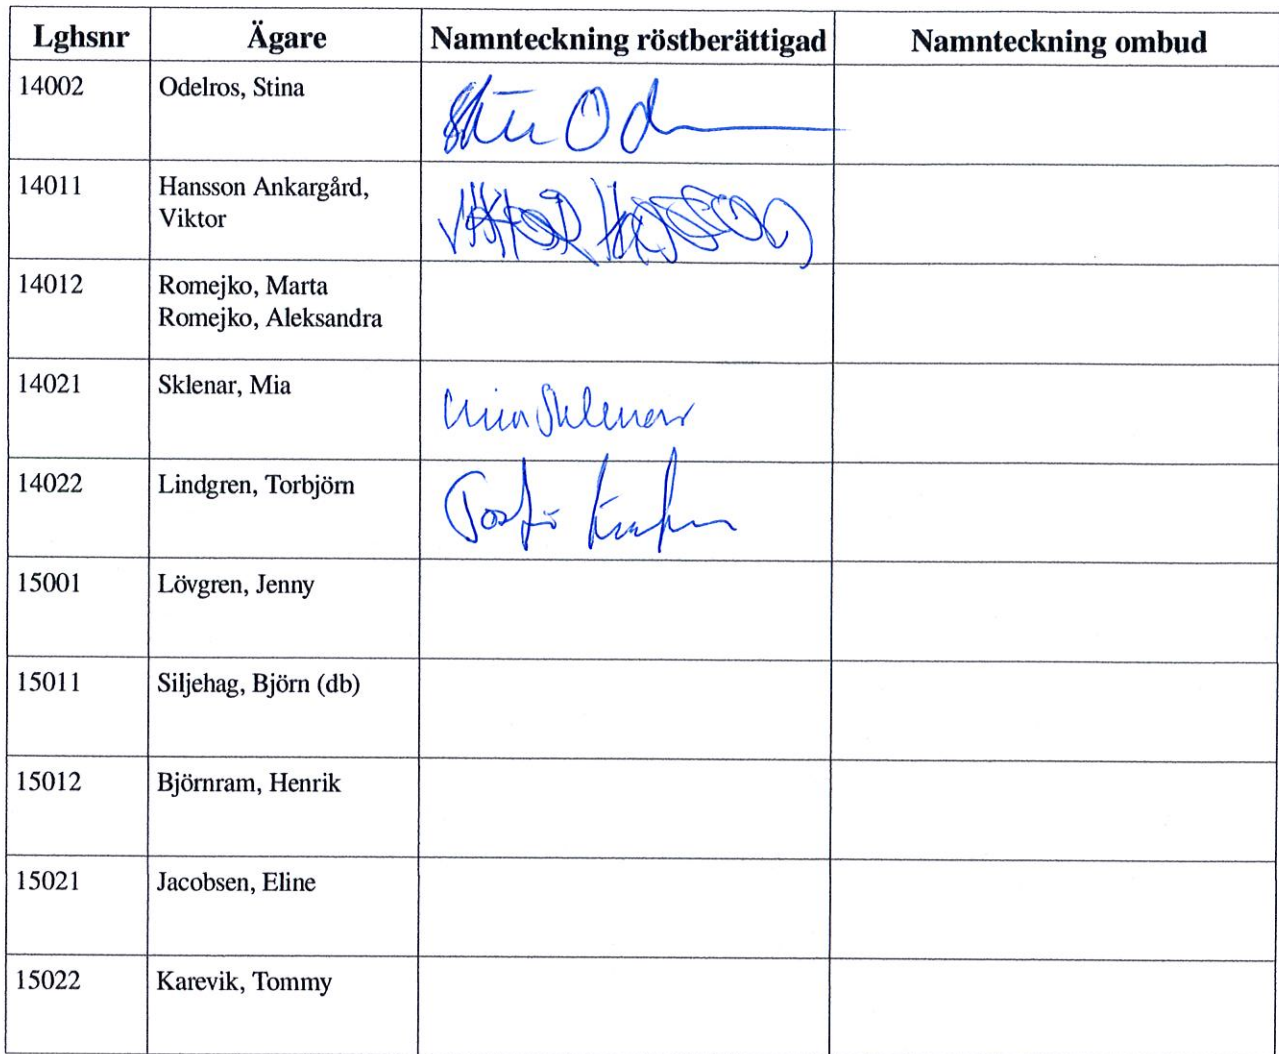 Lghsnr Ägare Namnteckning röstberättigad Namnteckning ombud
14002 Odelros, Stina
14011 Hansson Ankargård,
Viktor
14012 Romejko, Marta
Romejko, Aleksandra
14021 Sklenar, Mia Mia Sklenar
14022 Lindgren, Torbjörn
15001 Lövgren, Jenny
15011 Siljehag, Björn (db)
15012 Björnram, Henrik
15021 Jacobsen, Eline
15022 Karevik, Tommy